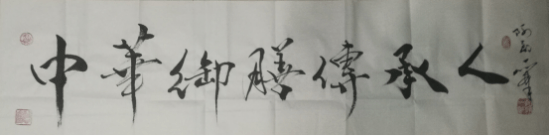 中華御膳傳承人